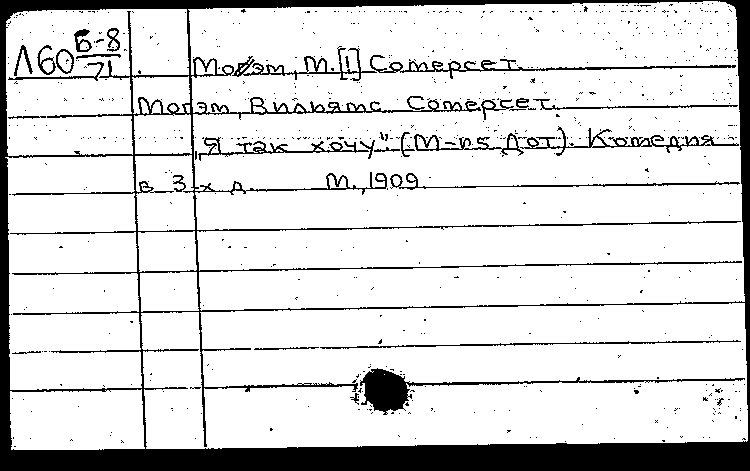 Л60 Б-8/71
Могэм, М. [!] Сомерсет.
Могэм, Вильямс Сомерсет.
„Я так хочу". (М-rs Дот). Комедия
в 3-х д. М., 1909.